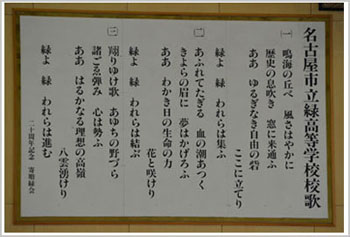 名古屋市立緑高等学校校歌
一 鳴海の丘べ 風さはやかに
歴史の息吹き 窓に来通ふ
ああ ゆるぎなき自由の砦
ここに立てり
緑よ 緑 われらは集ふ
二 あふれてたぎる 血の潮あつく
きよらの眉に 夢はかげろふ
ああ わかき日の生命の力
花と咲けり
緑よ 緑 われらは結ぶ
三 翔りゆけ歌 あゆちの野づら
諸ごゑ弾み 心は勢ふ
ああ はるかなる理想の高嶺
八雲湧けり
緑よ 緑 われらは進む
二十周年記念 寄贈 緑会